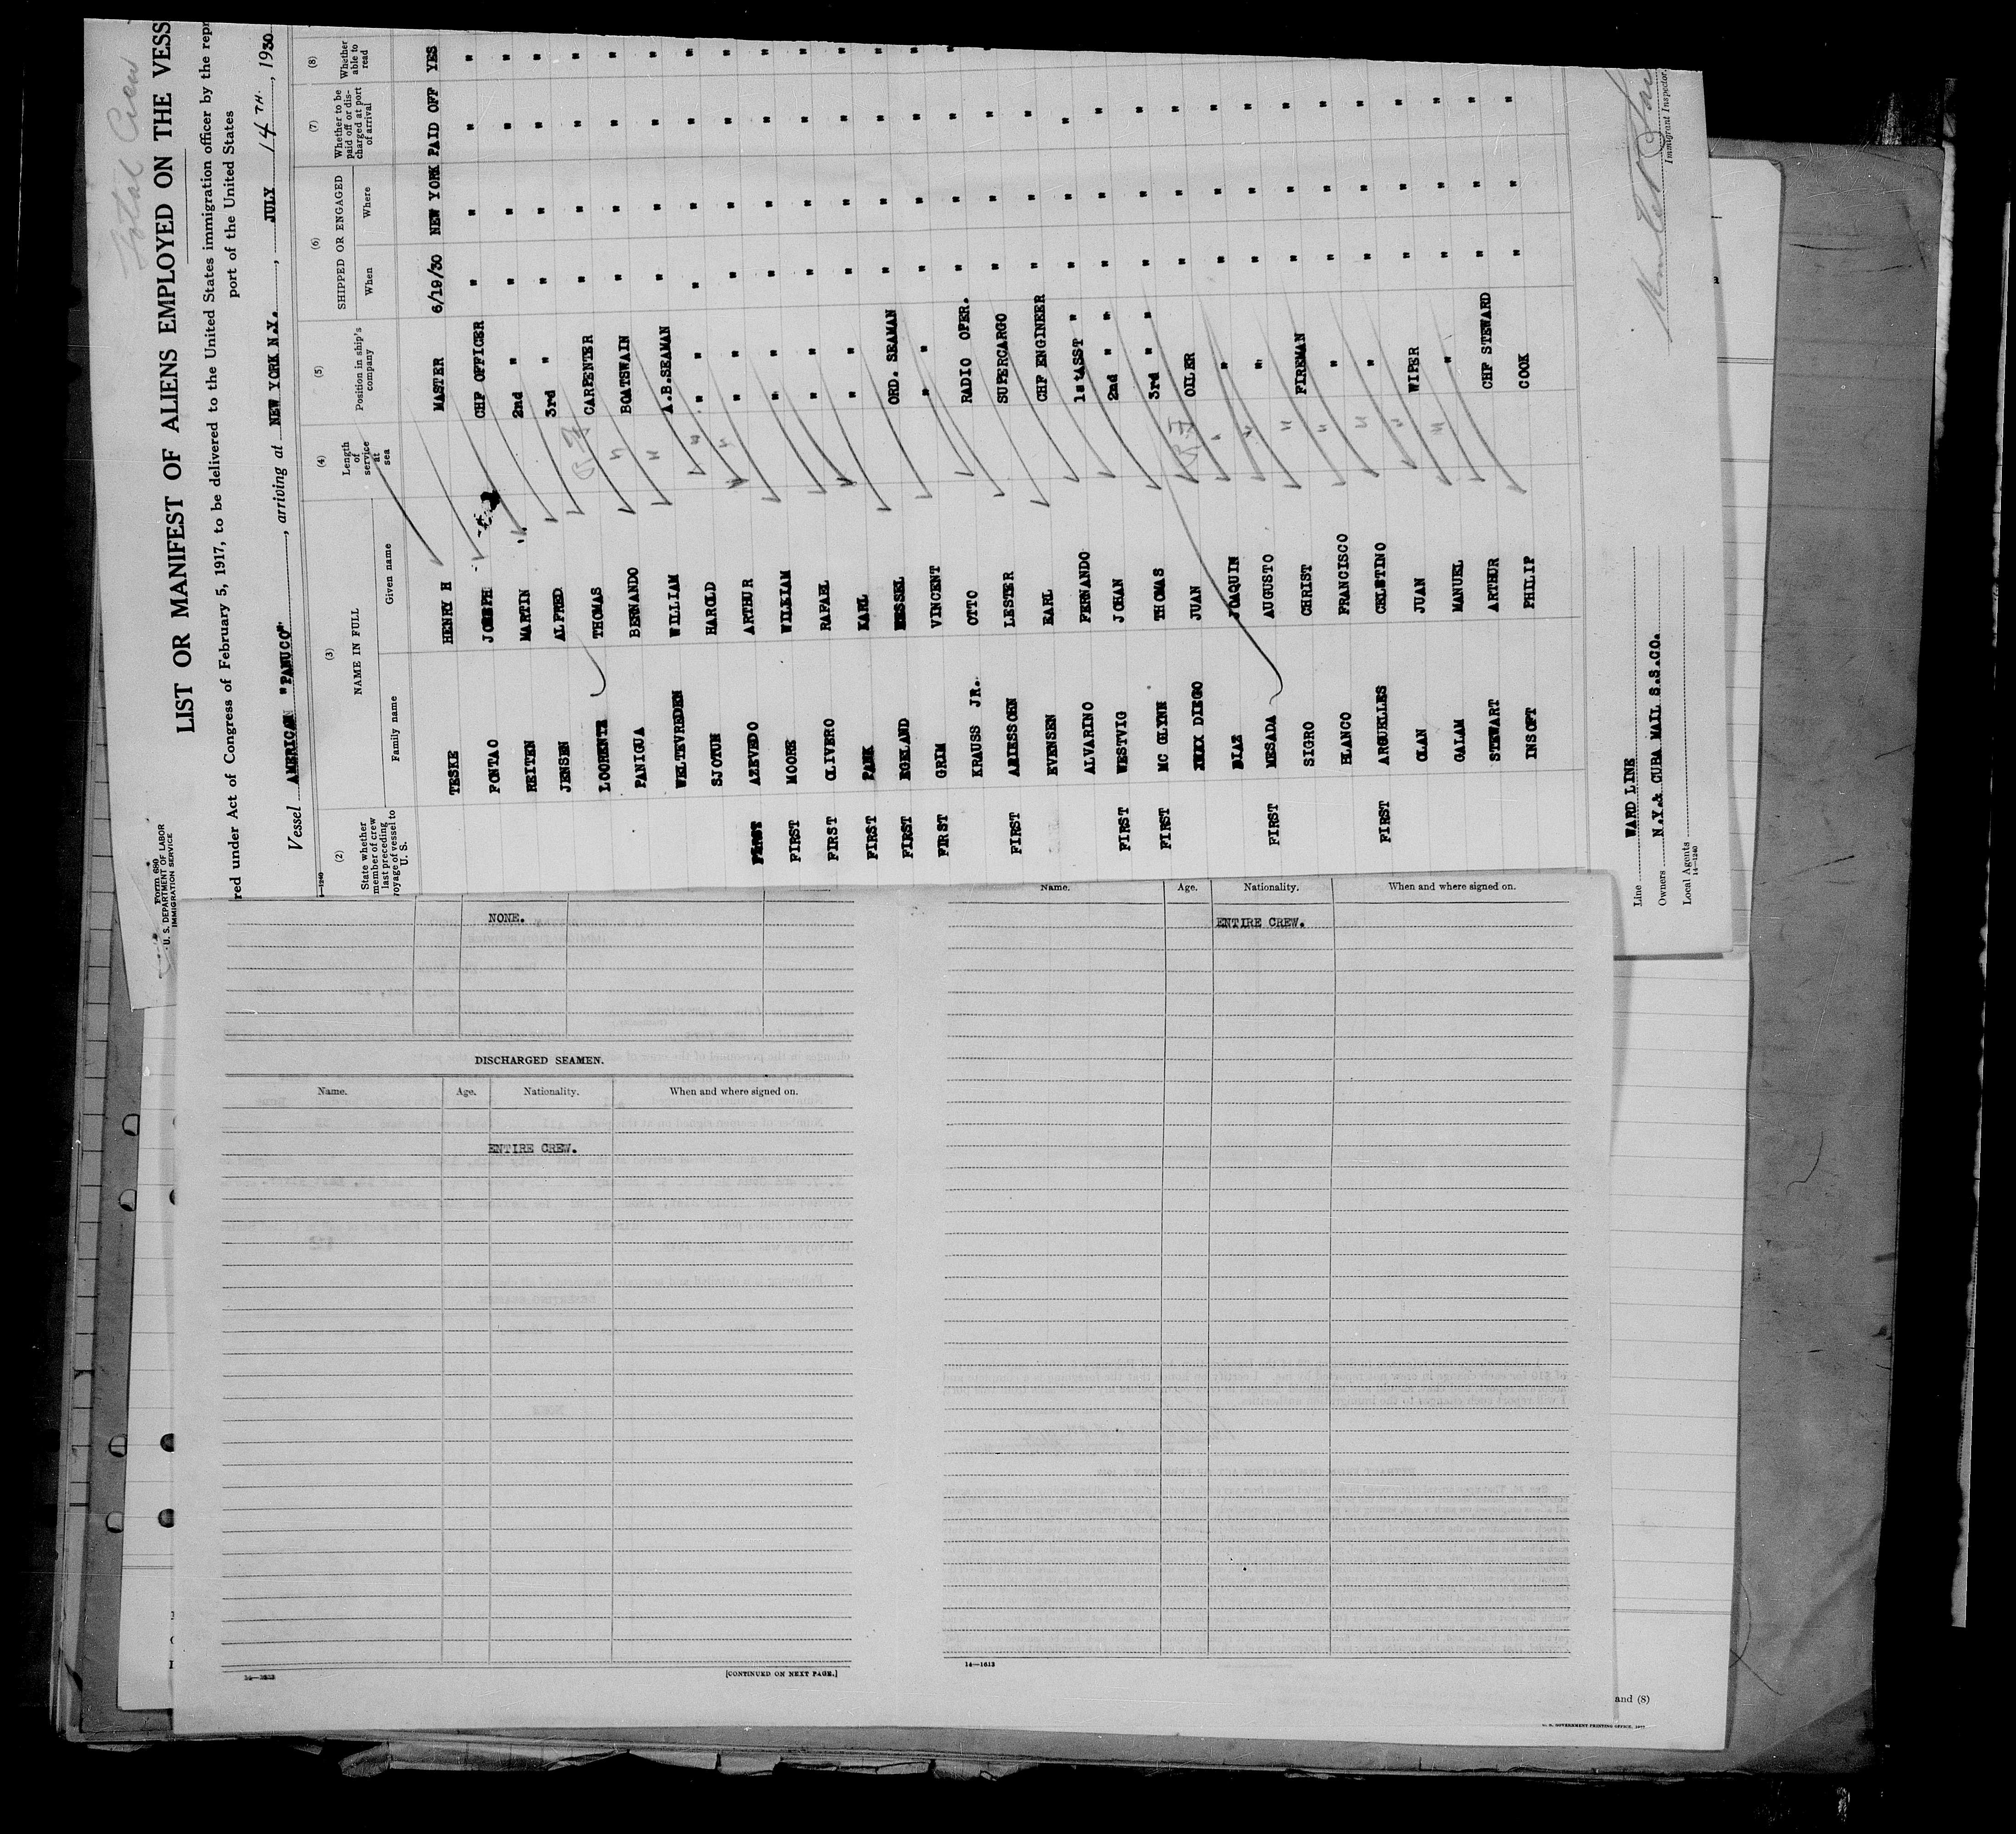 Total Crew
Form 680
U. S. DEPARTMENT OF LABOR
IMMIGRATION SERVICE
LIST OR MANIFEST OF ALIENS EMPLOYED ON THE VESS
red under Act of Congress of February 5, 1917, to be delivered to the United States immigration officer by the repr
port of the United States
Vessel AMERICAN "PANUCO", arriving at NEW YORK N.Y., JULY 14TH., 1930
(2) (3) (4) (5) (6) (7) (8)
State whether member of crew last preceding voyage of vessel to U. S. NAME IN FULL Family name Given name Length of service at sea Position in ship's company SHIPPED OR ENGAGED When Where Whether to be paid off or discharged at port of arrival Whether able to read
TESKE HENRY H MASTER 6/19/30 NEW YORK PAID OFF YES
FONTAO JOSEPH CHF OFFICER " " " "
REITEN MARTIN 2nd " " " " "
JENSEN ALFRED 3rd " " " " "
LOORENTZ THOMAS CARPENTER " " " "
PANIGUA BERNANDO " BOATSWAIN " " " "
WELTEVREDEN WILLIAM " A.B.SEAMAN " " " "
SJOTUN HAROLD " " " " " " "
FIRST AZEVEDO ARTHUR " " " " " " "
FIRST MOORE WILKIAM " " " " " "
FIRST OLIVERO RAFAEL " " " " " "
FIRST PANK KARL " " " " " "
FIRST EGELAND MESSEL ORD. SEAMAN " " " "
FIRST GRIM VINCENT " " " " " "
KRAUSS JR. OTTO RADIO OPER. " " " "
FIRST ABIESSCEN LESTER SUPERCARGO " " "
EVENSEN EARL CHF ENGINEER " " "
ALVARINO FERNANDO 1stASST " " " "
FIRST WESTVIG JOHAN 2nd " " " " "
FIRST MC GLYNN THOMAS 3rd " " " " "
DIEGO JUAN OILER " " "
DIAZ JOAQUIN " " " " "
FIRST MESADA AUGUSTO " " " " "
SIGRO CHRIST " FIREMAN " " "
BLANCO FRANCISCO " " " " "
FIRST ARGUELLES CELSTINO " " " " "
OLAN JUAN " WIPER " " "
GALAM MANUEL " " " " "
STEWART ARTHUR CHF STEWARD " " "
INSOFT PHILIP COOK " " "
Line WARD LINE
Owners N.Y.& CUBA MAIL S.S.CO.
Local Agents
14—1240
Immigrant Inspector.
NONE.
DISCHARGED SEAMEN.
Name. Age. Nationality. When and where signed on.
ENTIRE CREW.
[CONTINUED ON NEXT PAGE.]
Name. Age. Nationality. When and where signed on.
ENTIRE CREW.
14—1613
and (8)
U. S. GOVERNMENT PRINTING OFFICE